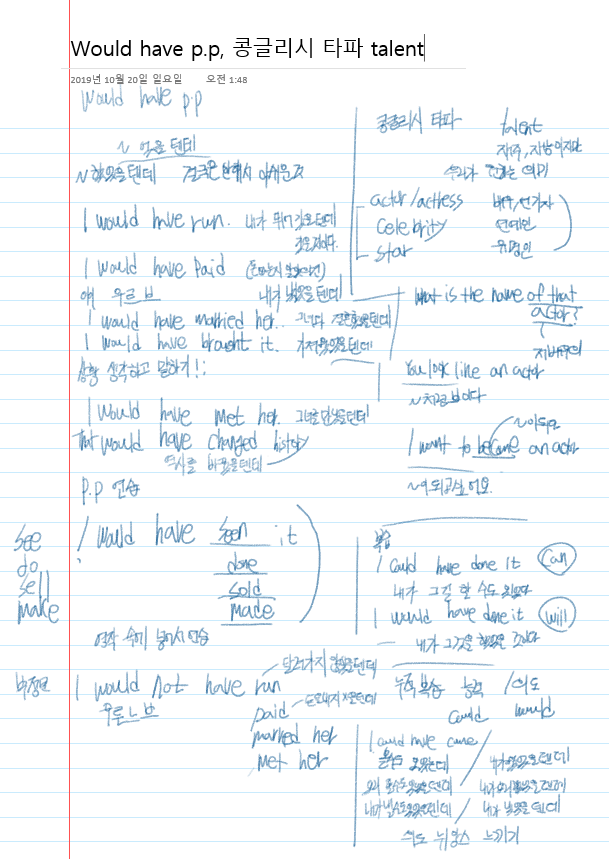 Would have p.p, 콩글리시 타파 talent
2019년 10월 20일 일요일 오전 1:48
Would have p.p
~ 했을 텐데
~ 했었을텐데
I would have run. 내가 뛰어갔을텐데
I would have paid
내가 냈었을텐데
I would have married her.. 그녀와 결혼했을텐데
I would have brought it. 가져왔었을텐데
상황 생각하고 말하기!!
I would have met her. 그녀를 만났을텐데
That would have changed history
역사를 바꿨을텐데
p.p 연습
see
do
sell
make
I would have seen it
done
sold
made
영작 속에 넣어서 연습
부정문
I would not have run
paid
married her
met her
콩글리시 타파
talent
재주, 지방이지만
actor/actress 배우, 연기자
celebrity 연예인
star 유명인
what is the name of that
actor?
You look like an actor
~처럼 보이다
I want to become an actor
~이 되고 싶어요.
복습
I could have done it can
내가 그걸 할 수도 있었다
I would have done it will
내가 그것을 했었을 것이다
누적복습 능력 / 의도
could would
I could have come
의도 뉘앙스 느끼기